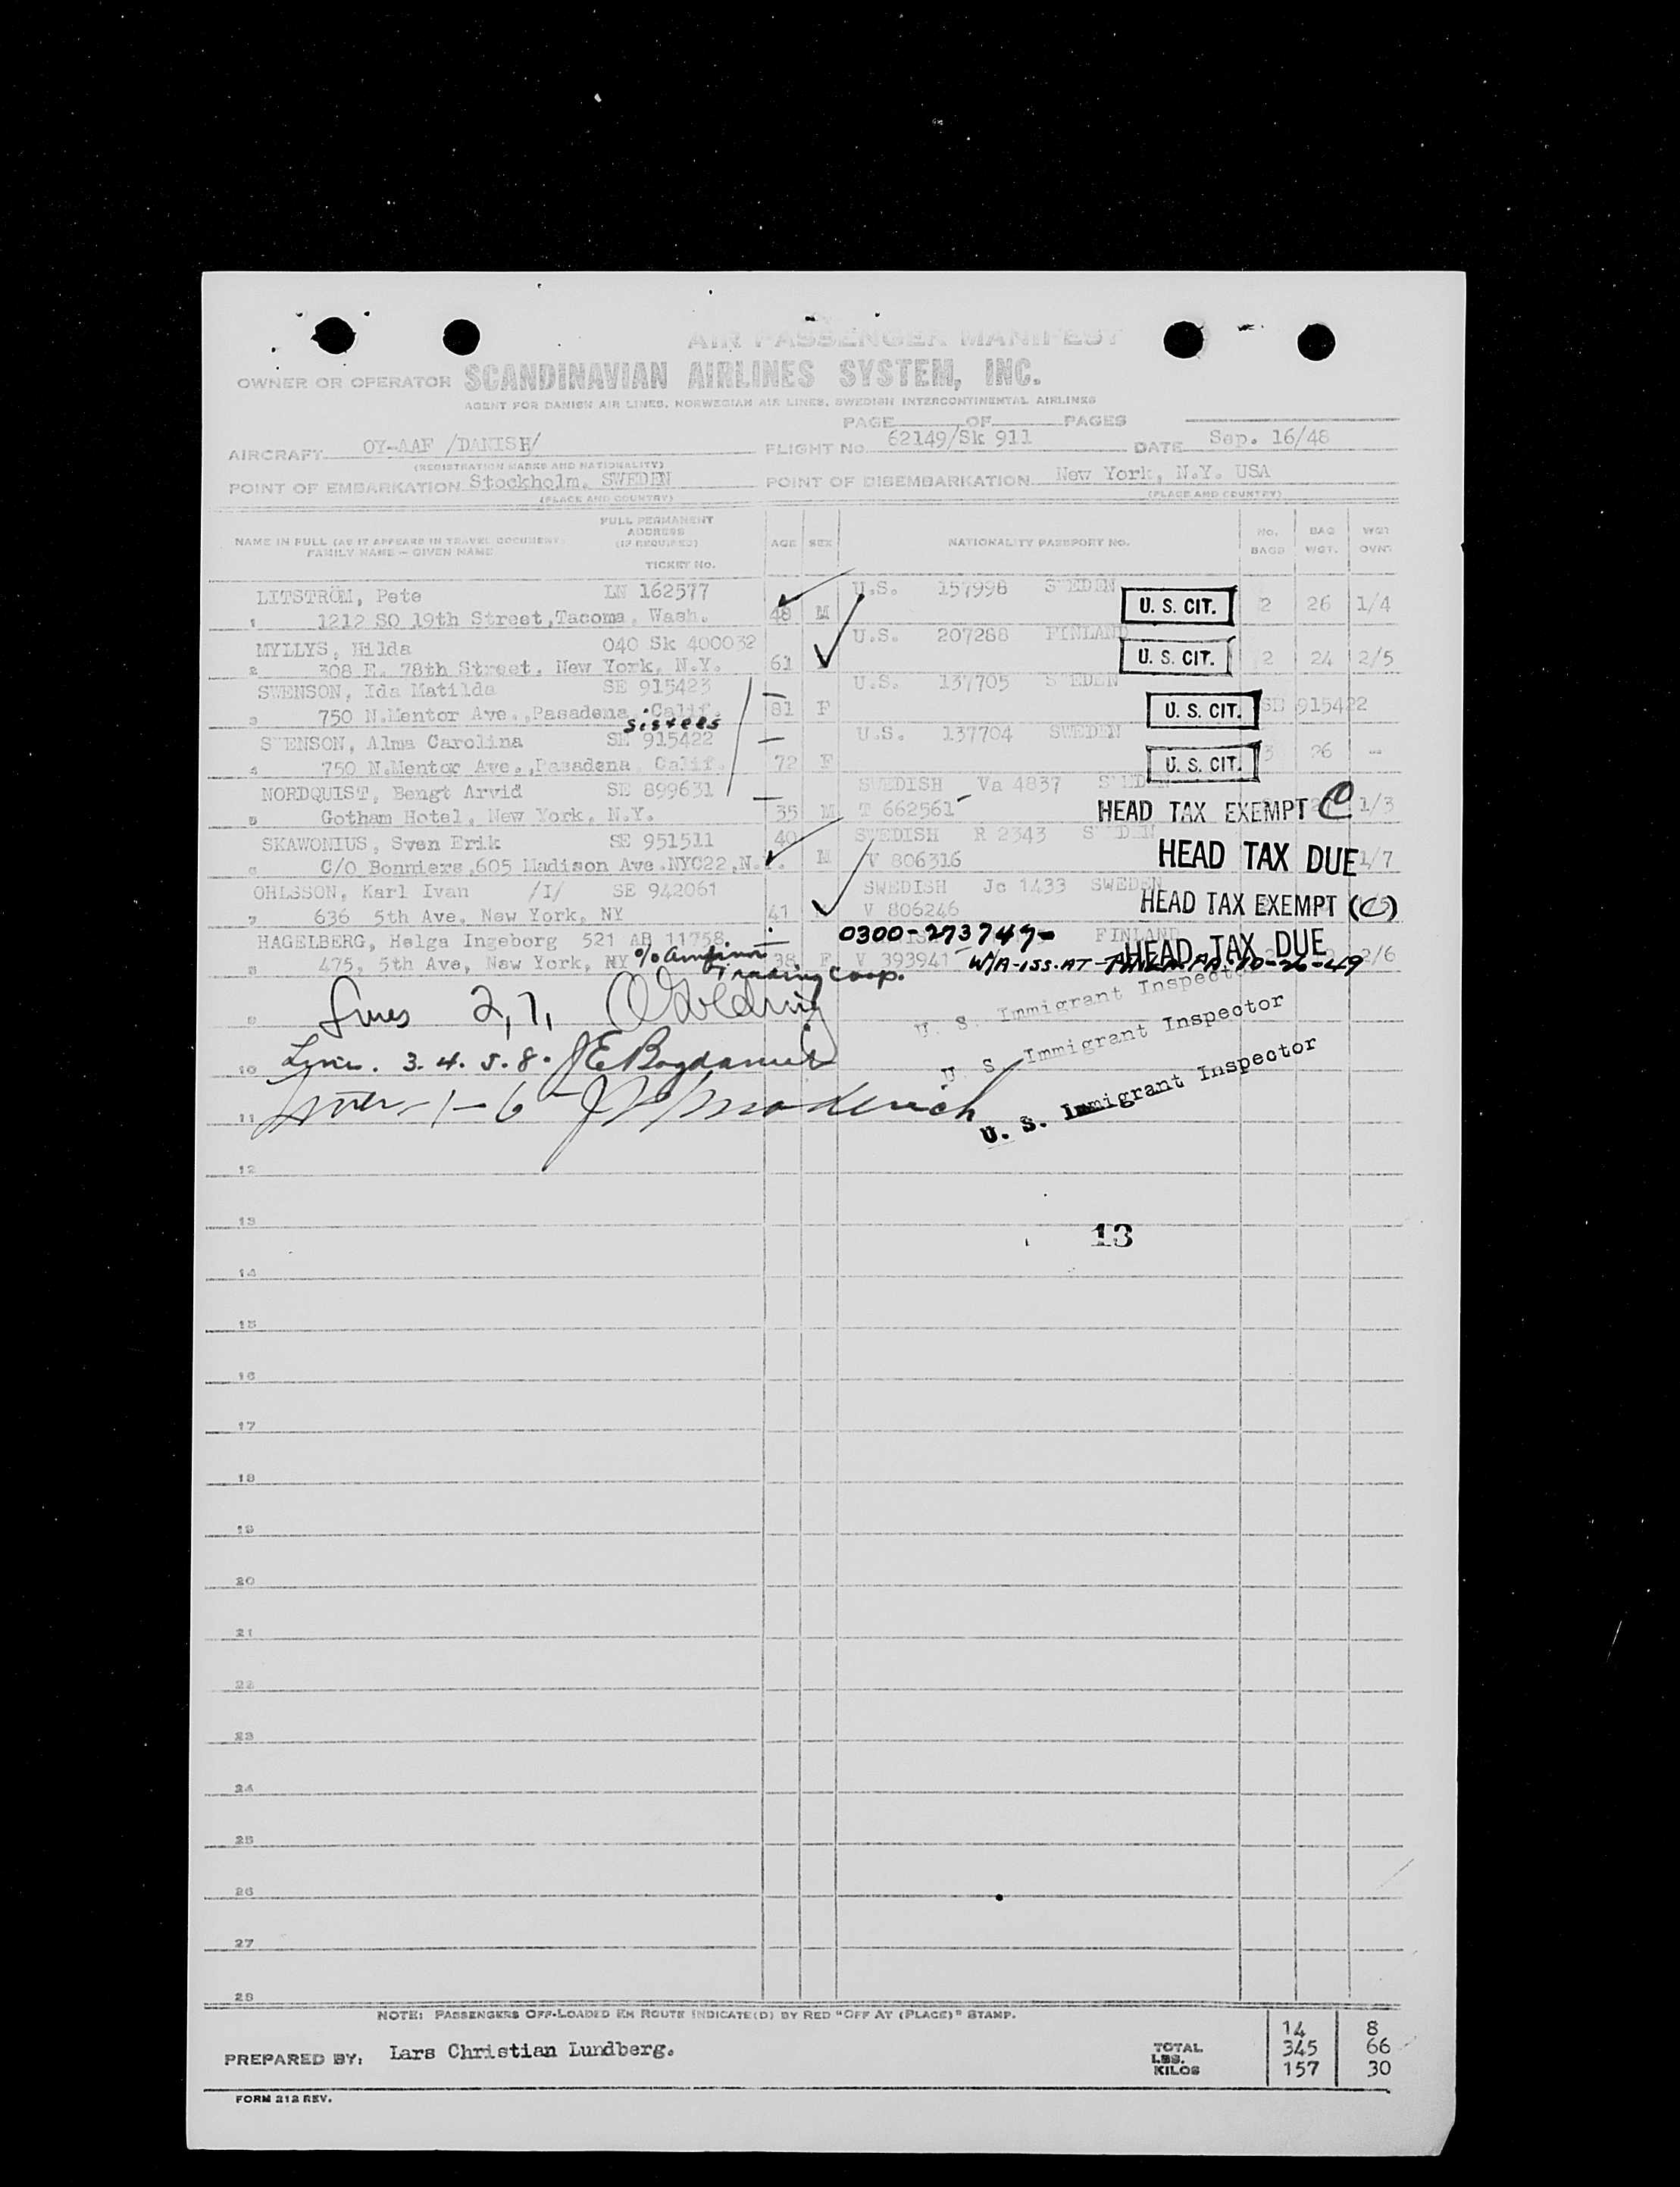 AIR PASSENGER MANIFEST
OWNER OR OPERATOR SCANDINAVIAN AIRLINES SYSTEM, INC.
AGENT FOR DANISH AIR LINES, NORWEGIAN AIR LINES, SWEDISH INTERCONTINENTAL AIRLINES
PAGE OF PAGES
AIRCRAFT OY-AAF /DANISH/ FLIGHT NO. 62149/Sk 911 DATE Sep. 16/48
(REGISTRATION MARKS AND NATIONALITY)
POINT OF EMBARKATION Stockholm, SWEDEN POINT OF DISEMBARKATION New York, N.Y. USA
(PLACE AND COUNTRY) (PLACE AND COUNTRY)
NAME IN FULL (AS IT APPEARS IN TRAVEL DOCUMENT) FAMILY NAME - GIVEN NAME FULL PERMANENT ADDRESS (IF REQUIRED) TICKET NO. AGE SEX NATIONALITY PASSPORT NO. NO. BAGS BAG WGT. WGT OVNT.
LITSTRÖM, Pete LN 162577 U.S. 157998 SWEDEN
1 1212 SO 19th Street, Tacoma, Wash. 48 M U. S. CIT. 2 26 1/4
MYLLYS, Hilda 040 Sk 400032 U.S. 207288 FINLAND
2 308 E. 78th Street, New York, N.Y. 61 U. S. CIT. 2 24 2/5
SWENSON, Ida Matilda SE 915423 U.S. 137705 SWEDEN
3 750 N.Mentor Ave.,Pasadena, Calif. 81 F U. S. CIT. SE 915422
sisters
SWENSON, Alma Carolina SE 915422 U.S. 137704 SWEDEN
4 750 N.Mentor Ave.,Pasadena Calif. 72 F U. S. CIT. 3 26 -
NORDQUIST, Bengt Arvid SE 899631 SWEDISH Va 4837 SWEDEN
5 Gotham Hotel, New York, N.Y. 35 M T 662561 HEAD TAX EXEMPT C 1/3
SKAWONIUS, Sven Erik SE 951511 40 SWEDISH R 2343 SWEDEN
6 C/O Bonniers,605 Madison Ave.NYC22,N.Y. M V 806316 HEAD TAX DUE 1/7
OHLSSON, Karl Ivan /I/ SE 942061 SWEDISH Jc 1433 SWEDEN
7 636 5th Ave, New York, NY 41 V 806246 HEAD TAX EXEMPT (C)
HAGELBERG, Helga Ingeborg 521 AB 11758 0300-273747- FINLAND HEAD TAX DUE
8 475, 5th Ave, New York, NY 38 F V 393941 W/A-ISS. AT 10-26-49 2/6
Trading Coop.
9 Lines 2, 7, U. S. Immigrant Inspector
10 Lines. 3. 4. 5. 8. U. S. Immigrant Inspector
11 Lines - 1 - 6 U. S. Immigrant Inspector
12
13
13
14
15
16
17
18
19
20
21
22
23
24
25
26
27
28
NOTE: PASSENGERS OFF-LOADED EN ROUTE INDICATE(D) BY RED "OFF AT (PLACE)" STAMP.
14 8
PREPARED BY: Lars Christian Lundberg. TOTAL LBS. 345 66
KILOS 157 30
FORM 212 REV.